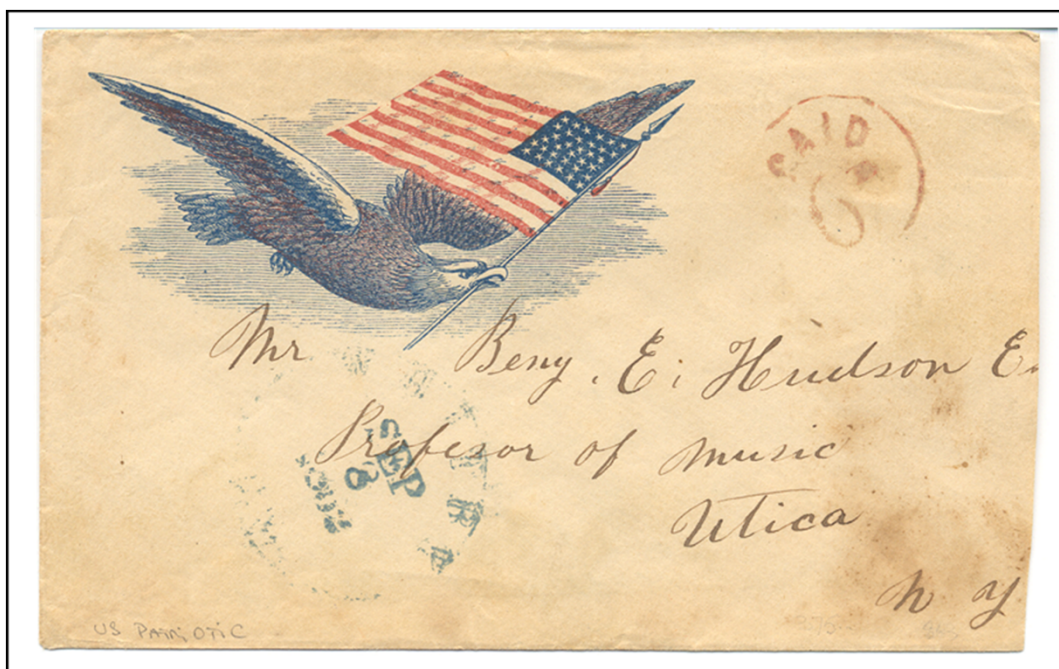 PAID
Mr Benj. E. Hudson E
Profesor of Music
SEP
Utica
N Y
US PATRIOTIC